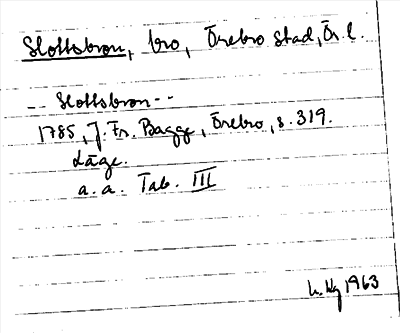 Slottsbron, bro, Örebro stad, Ör. l.
-- Slottsbron --
1785, J. Fr. Bagge, Örebro, s. 319.
Läge.
a. a. Tab. III
1963